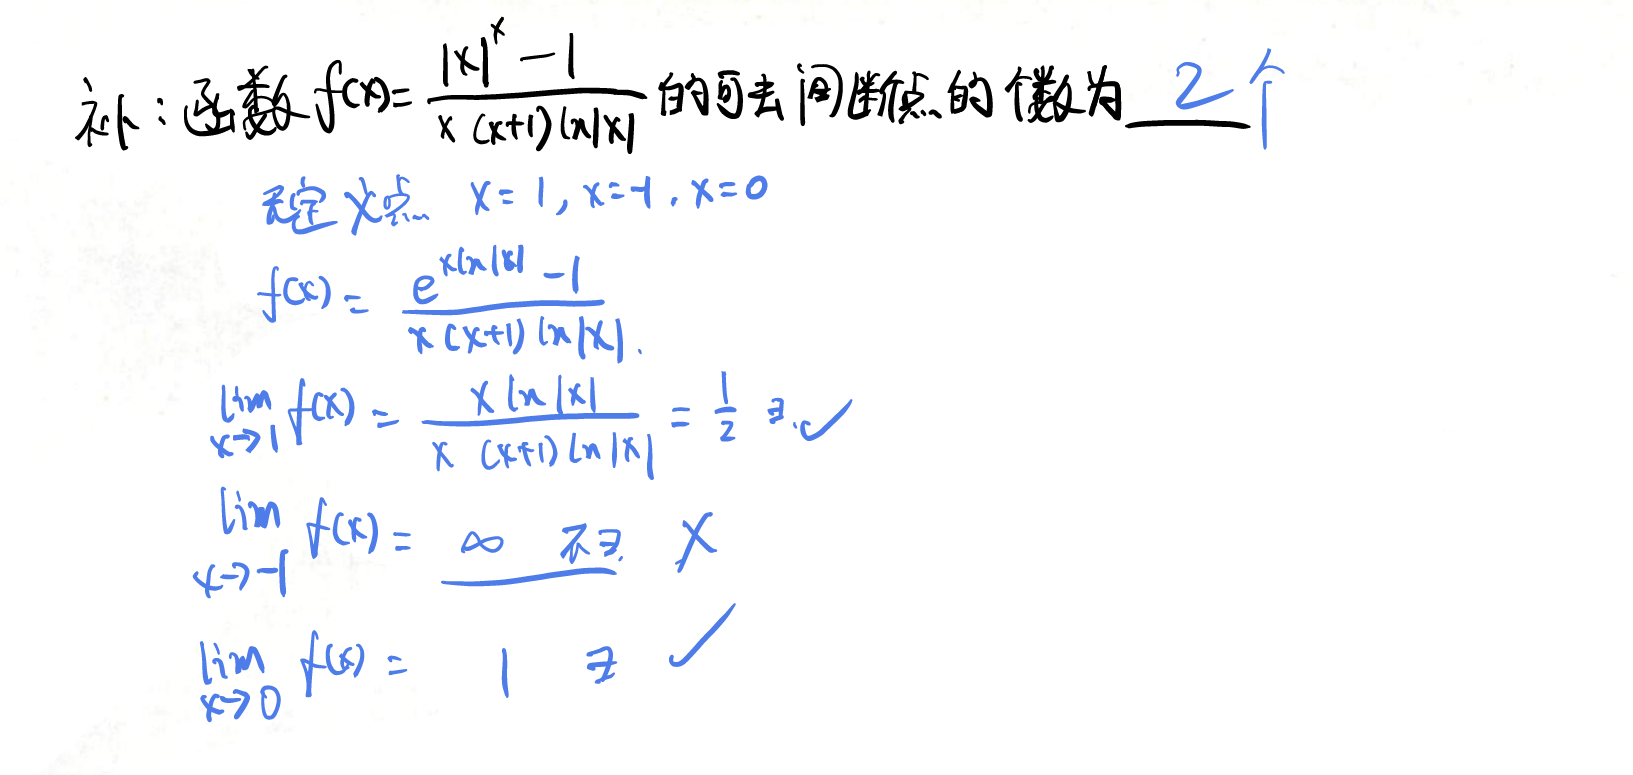 补:函数 f(x)= \frac{|x|^x - 1}{x (x+1) ln|x|} 的可去间断点的个数为 2 个
无定义点 x=1, x=-1, x=0
f(x) = \frac{e^{x ln|x|} - 1}{x (x+1) ln|x|}.
lim_{x→1} f(x) = \frac{x ln|x|}{x (x+1) ln|x|} = \frac{1}{2} ∃. ✓
lim_{x→-1} f(x) = ∞ 不∃. ×
lim_{x→0} f(x) = 1 ∃ ✓